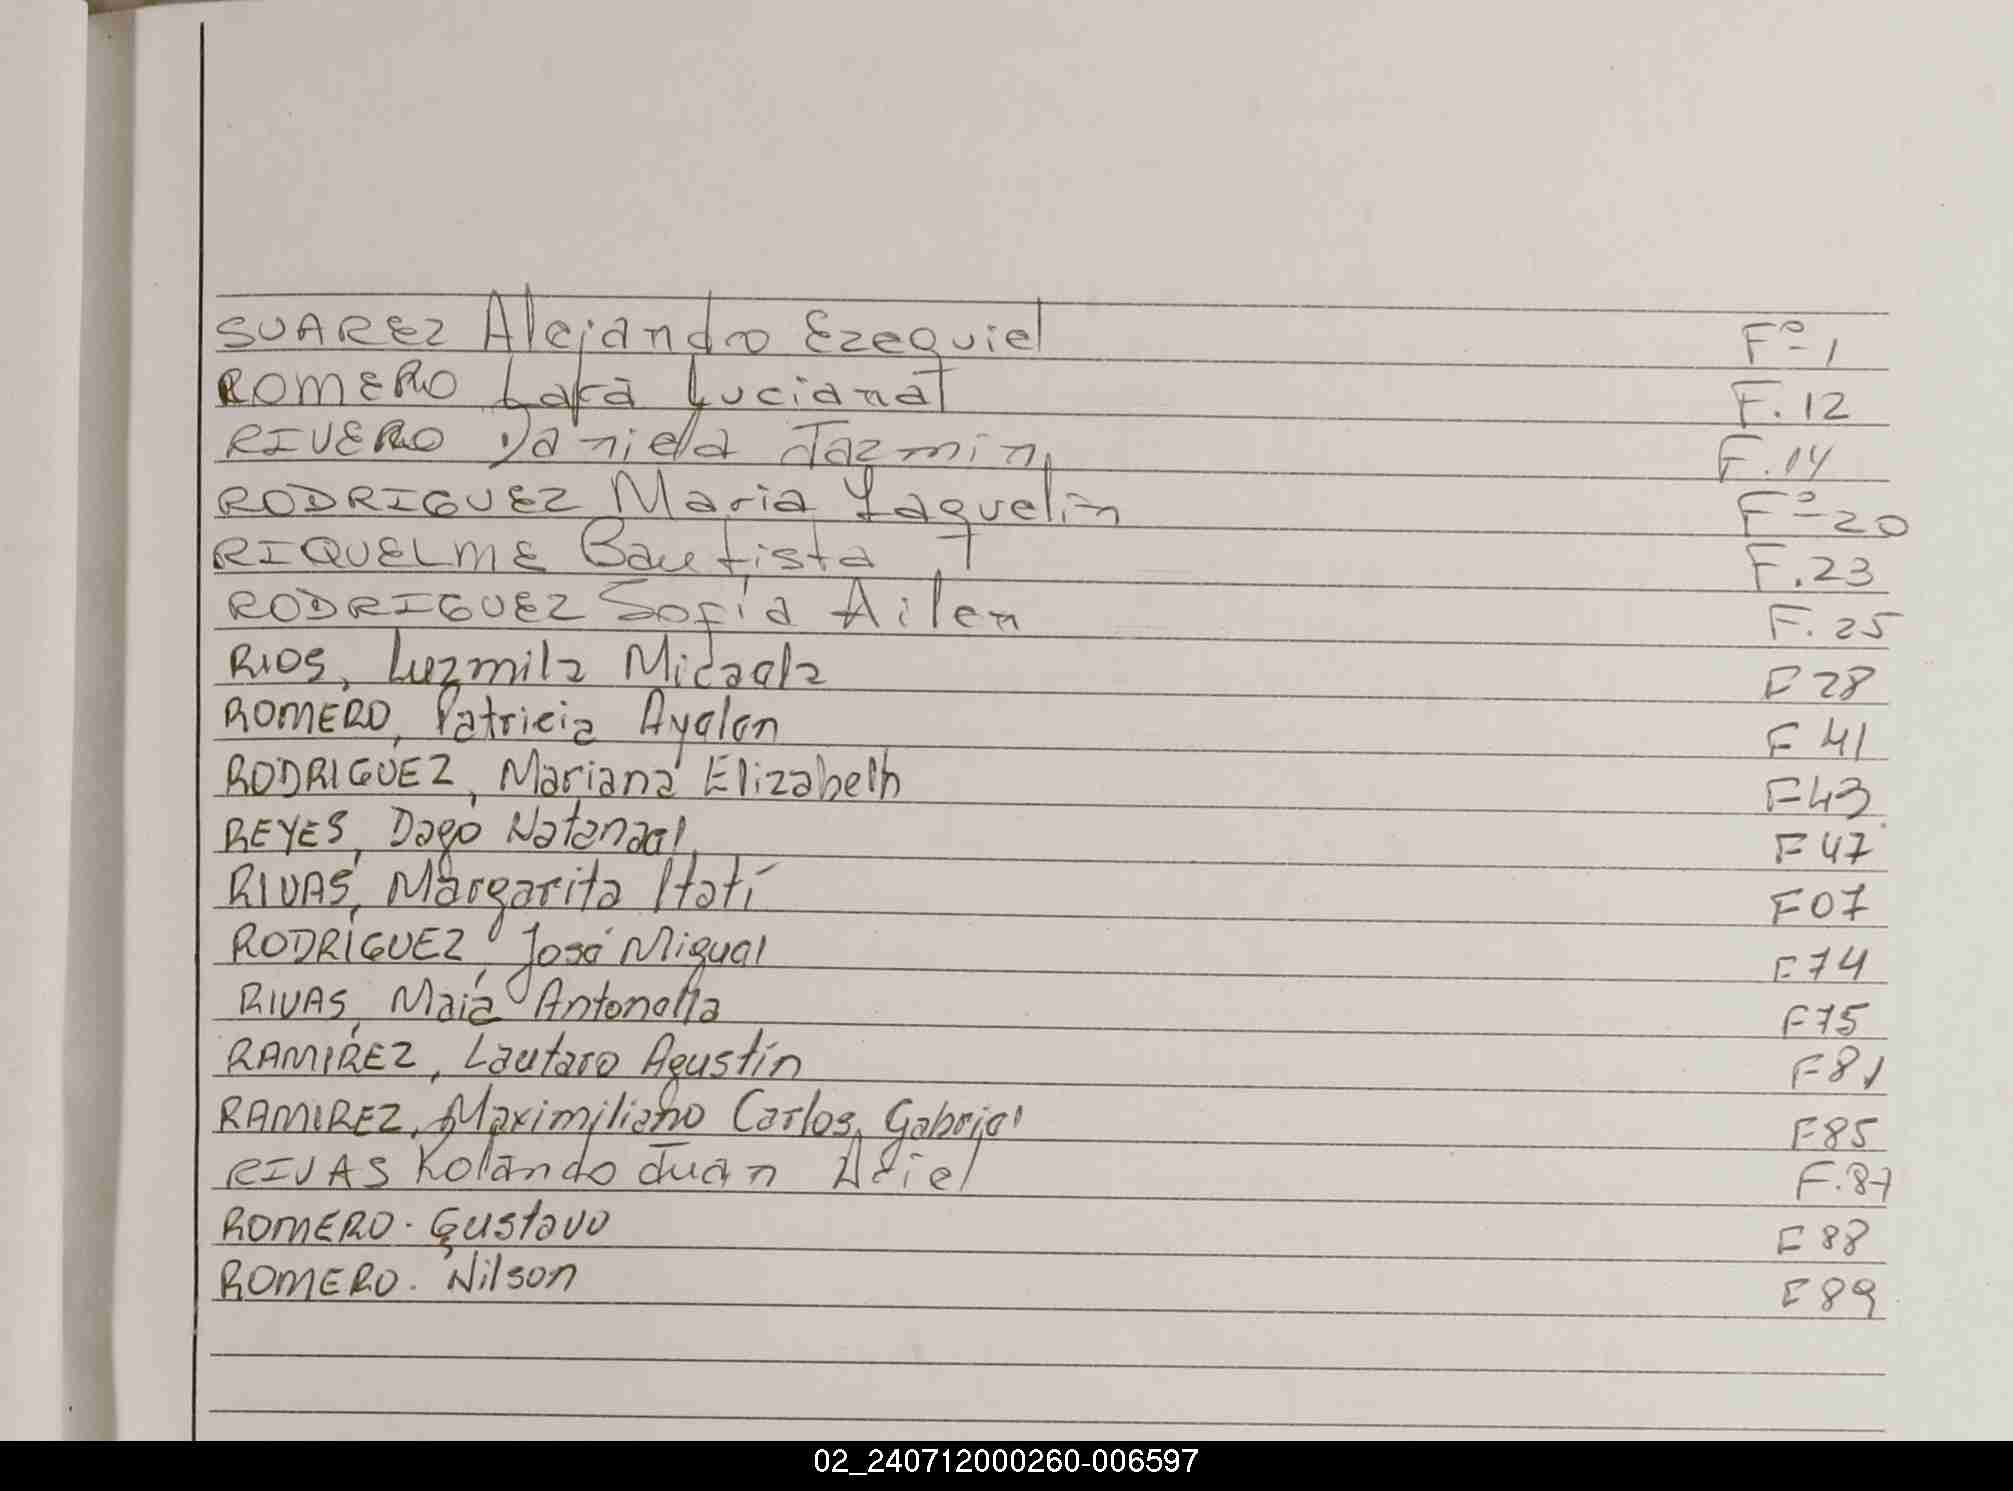 SUAREZ Alejandro Ezequiel F° 1
ROMERO Lara Luciana F. 12
RIVERO Daniela Jazmin F. 14
RODRIGUEZ Maria Yaquelin F° 20
RIQUELME Bautista F. 23
RODRIGUEZ Sofía Ailen F. 25
RIOS, Luzmila Micaela F 28
ROMERO, Patricia Ayelen F 41
RODRIGUEZ, Mariana Elizabeth F 43
REYES, Dago Natanael F 47
RIVAS, Margarita Itatí F 07
RODRIGUEZ, José Miguel F 74
RIVAS, Maia Antonella F 75
RAMIREZ, Lautaro Agustín F 81
RAMIREZ, Maximiliano Carlos Gabriel F 85
RIVAS Rolando Juan Ariel F. 87
ROMERO. Gustavo F 88
ROMERO. Nilson F 89
02_240712000260-006597